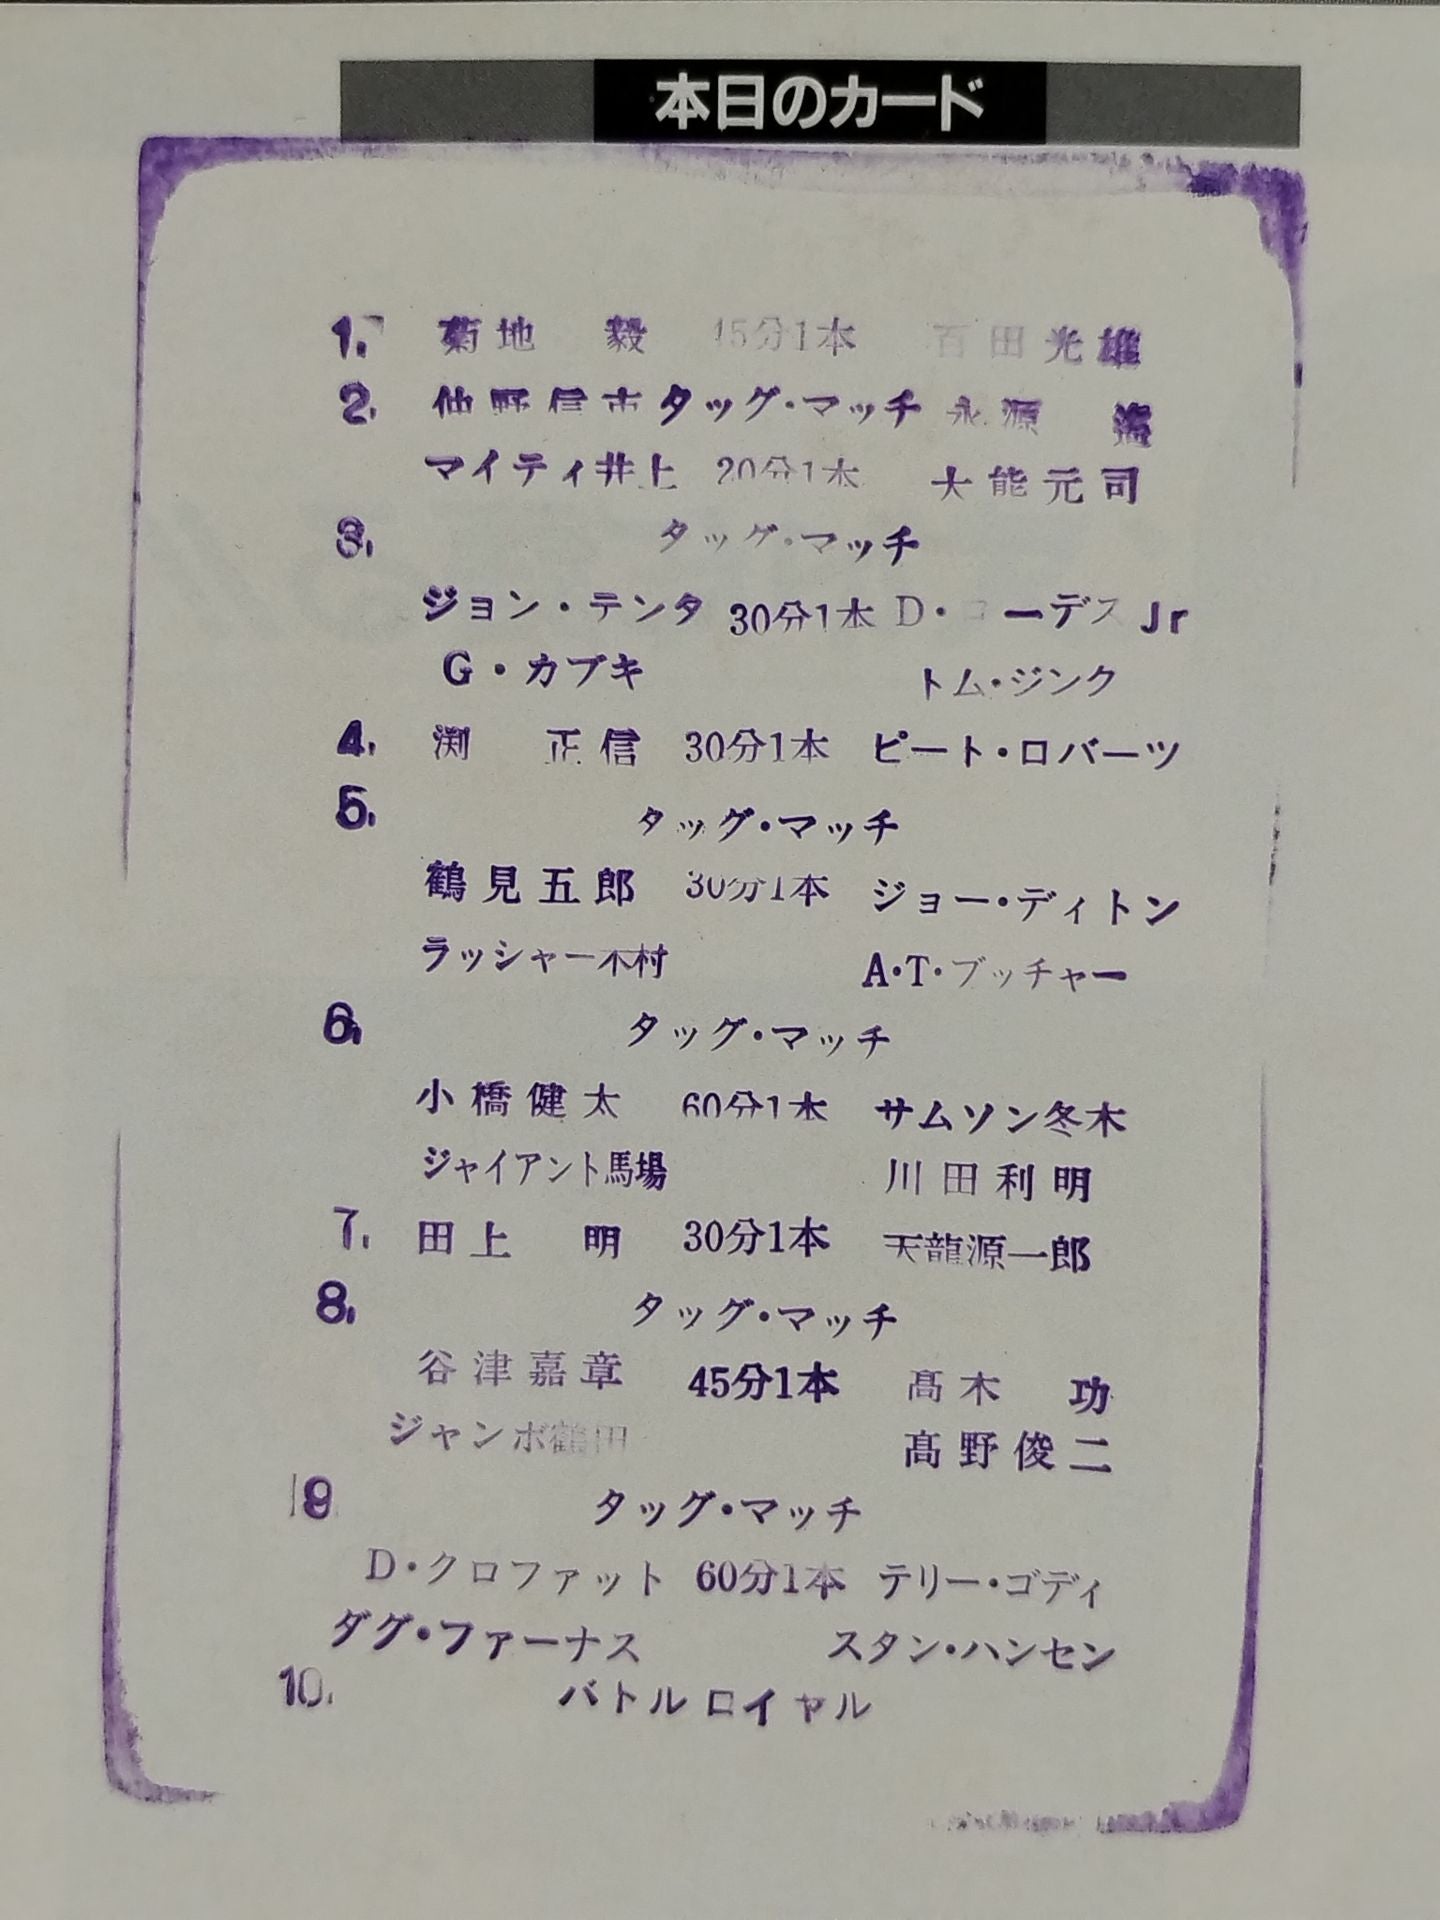 本日のカード
1. 菊地 毅 15分1本 百田光雄
2. 仲野信市 タッグ・マッチ 永源 遙
マイティ井上 20分1本 大熊元司
3. タッグ・マッチ
ジョン・テンタ 30分1本 D・ローデス Jr
G・カブキ トム・ジンク
4. 渕 正信 30分1本 ピート・ロバーツ
5. タッグ・マッチ
鶴見五郎 30分1本 ジョー・ディトン
ラッシャー木村 A・T・ブッチャー
6. タッグ・マッチ
小橋健太 60分1本 サムソン冬木
ジャイアント馬場 川田利明
7. 田上 明 30分1本 天龍源一郎
8. タッグ・マッチ
谷津嘉章 45分1本 髙木 功
ジャンボ鶴田 髙野俊二
9 タッグ・マッチ
D・クロファット 60分1本 テリー・ゴディ
ダグ・ファーナス スタン・ハンセン
10. バトルロイヤル